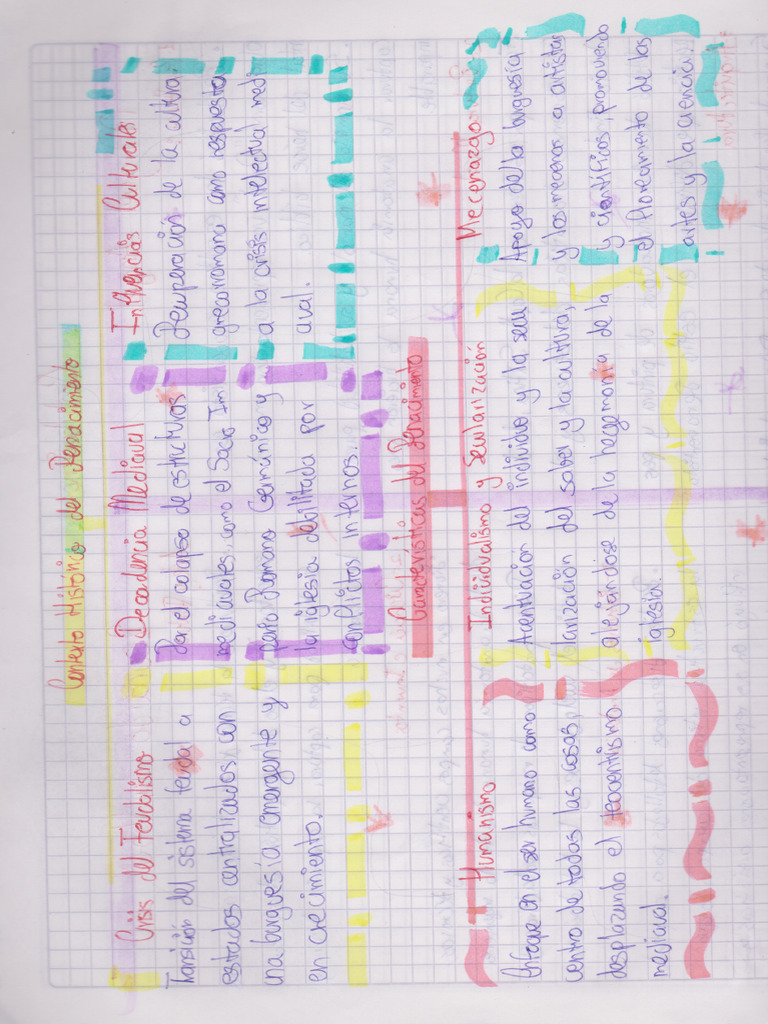 Contexto Histórico del Renacimiento
Crisis del Feudalismo
Transición del sistema feudal a
estados centralizados con
una burguesía emergente y
en crecimiento.
Decadencia Medieval
Por el colapso de estructuras
medievales como el Sacro Im
perio Romano Germánico y
la iglesia debilitada por
conflictos internos.
Influencias Culturales
Recuperación de la cultura
grecorromana como respuesta
a la crisis intelectual medi
aval.
Características del Renacimiento
Humanismo
Enfoque en el ser humano como
centro de todas las cosas,
desplazando el teocentrismo
medieval.
Individualismo y Secularización
Acentuación del individuo y la secu
larización del saber y la cultura,
alejándose de la hegemonía de la
iglesia.
Mecenazgo
Apoyo de la burguesía
y los mecenas a artistas
y científicos, promoviendo
el floreamiento de las
artes y la ciencia.